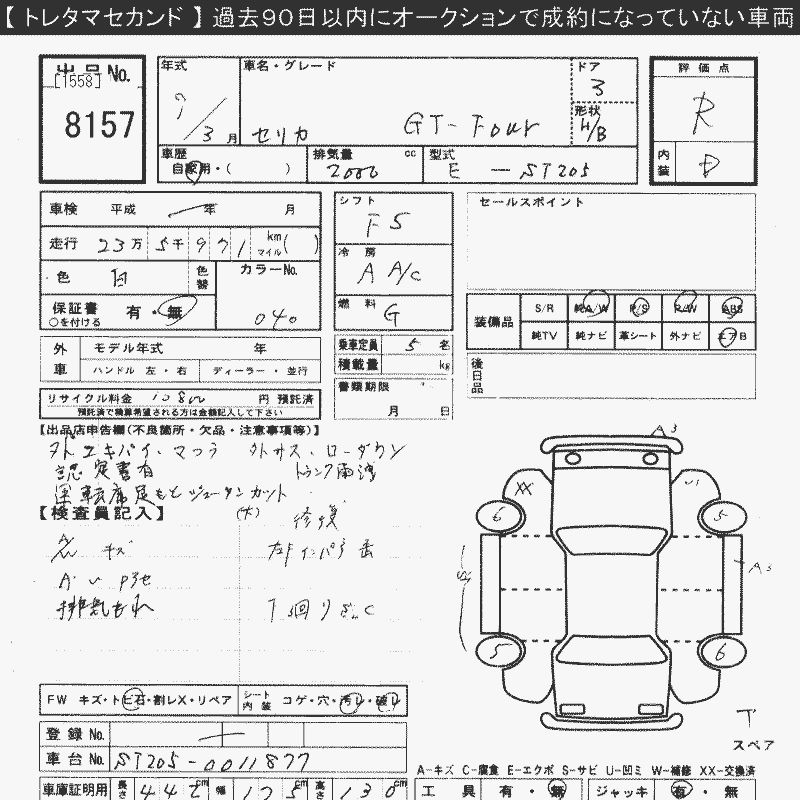 【トレタマセカンド】過去90日以内にオークションで成約になっていない車両
出品No.
[1558]
8157
年式
7/3 月
車名・グレード
セリカ GT-Four
ドア
3
形状
H/B
車歴
自家用・( )
排気量 cc
2000
型式
E - ST205
評価点
R
内装
D
車検 平成 年 月
走行 23万 5千 971 km マイル( )
色 白 色替
カラーNo.
040
保証書 有・無
○を付ける
シフト
F5
冷房
A A/C
燃料
G
セールスポイント
装備品 S/R 純A/W P/S P/W ABS
純TV 純ナビ 革シート 外ナビ エアB
外車 モデル年式 年
ハンドル 左・右 ディーラー・並行
乗車定員 5 名
積載量 kg
後日品
リサイクル料金 円 預託済
預託済で精算希望される方は金額記入して下さい
書類期限
月 日
【出品店申告欄(不良箇所・欠品・注意事項等)】
外エキパイ・マフラ 外サス・ローダウン
認定書有 トランク雨漏
運転席足もとジュータンカット
【検査員記入】
(大) 修復
キズ
排気もれ
下回りさびC
A3
XX
6
5
A3
5
6
下
スペア
FW キズ・トビ石・割レX・リペア
シート内装 コゲ・穴・汚レ・破レ
登録No.
車台No. ST205-0011877
A-キズ C-腐食 E-エクボ S-サビ U-凹ミ W-補修 XX-交換済
車庫証明用 長さ 442 cm 幅 175 cm 高さ 130 cm
工具 有・無 ジャッキ 有・無